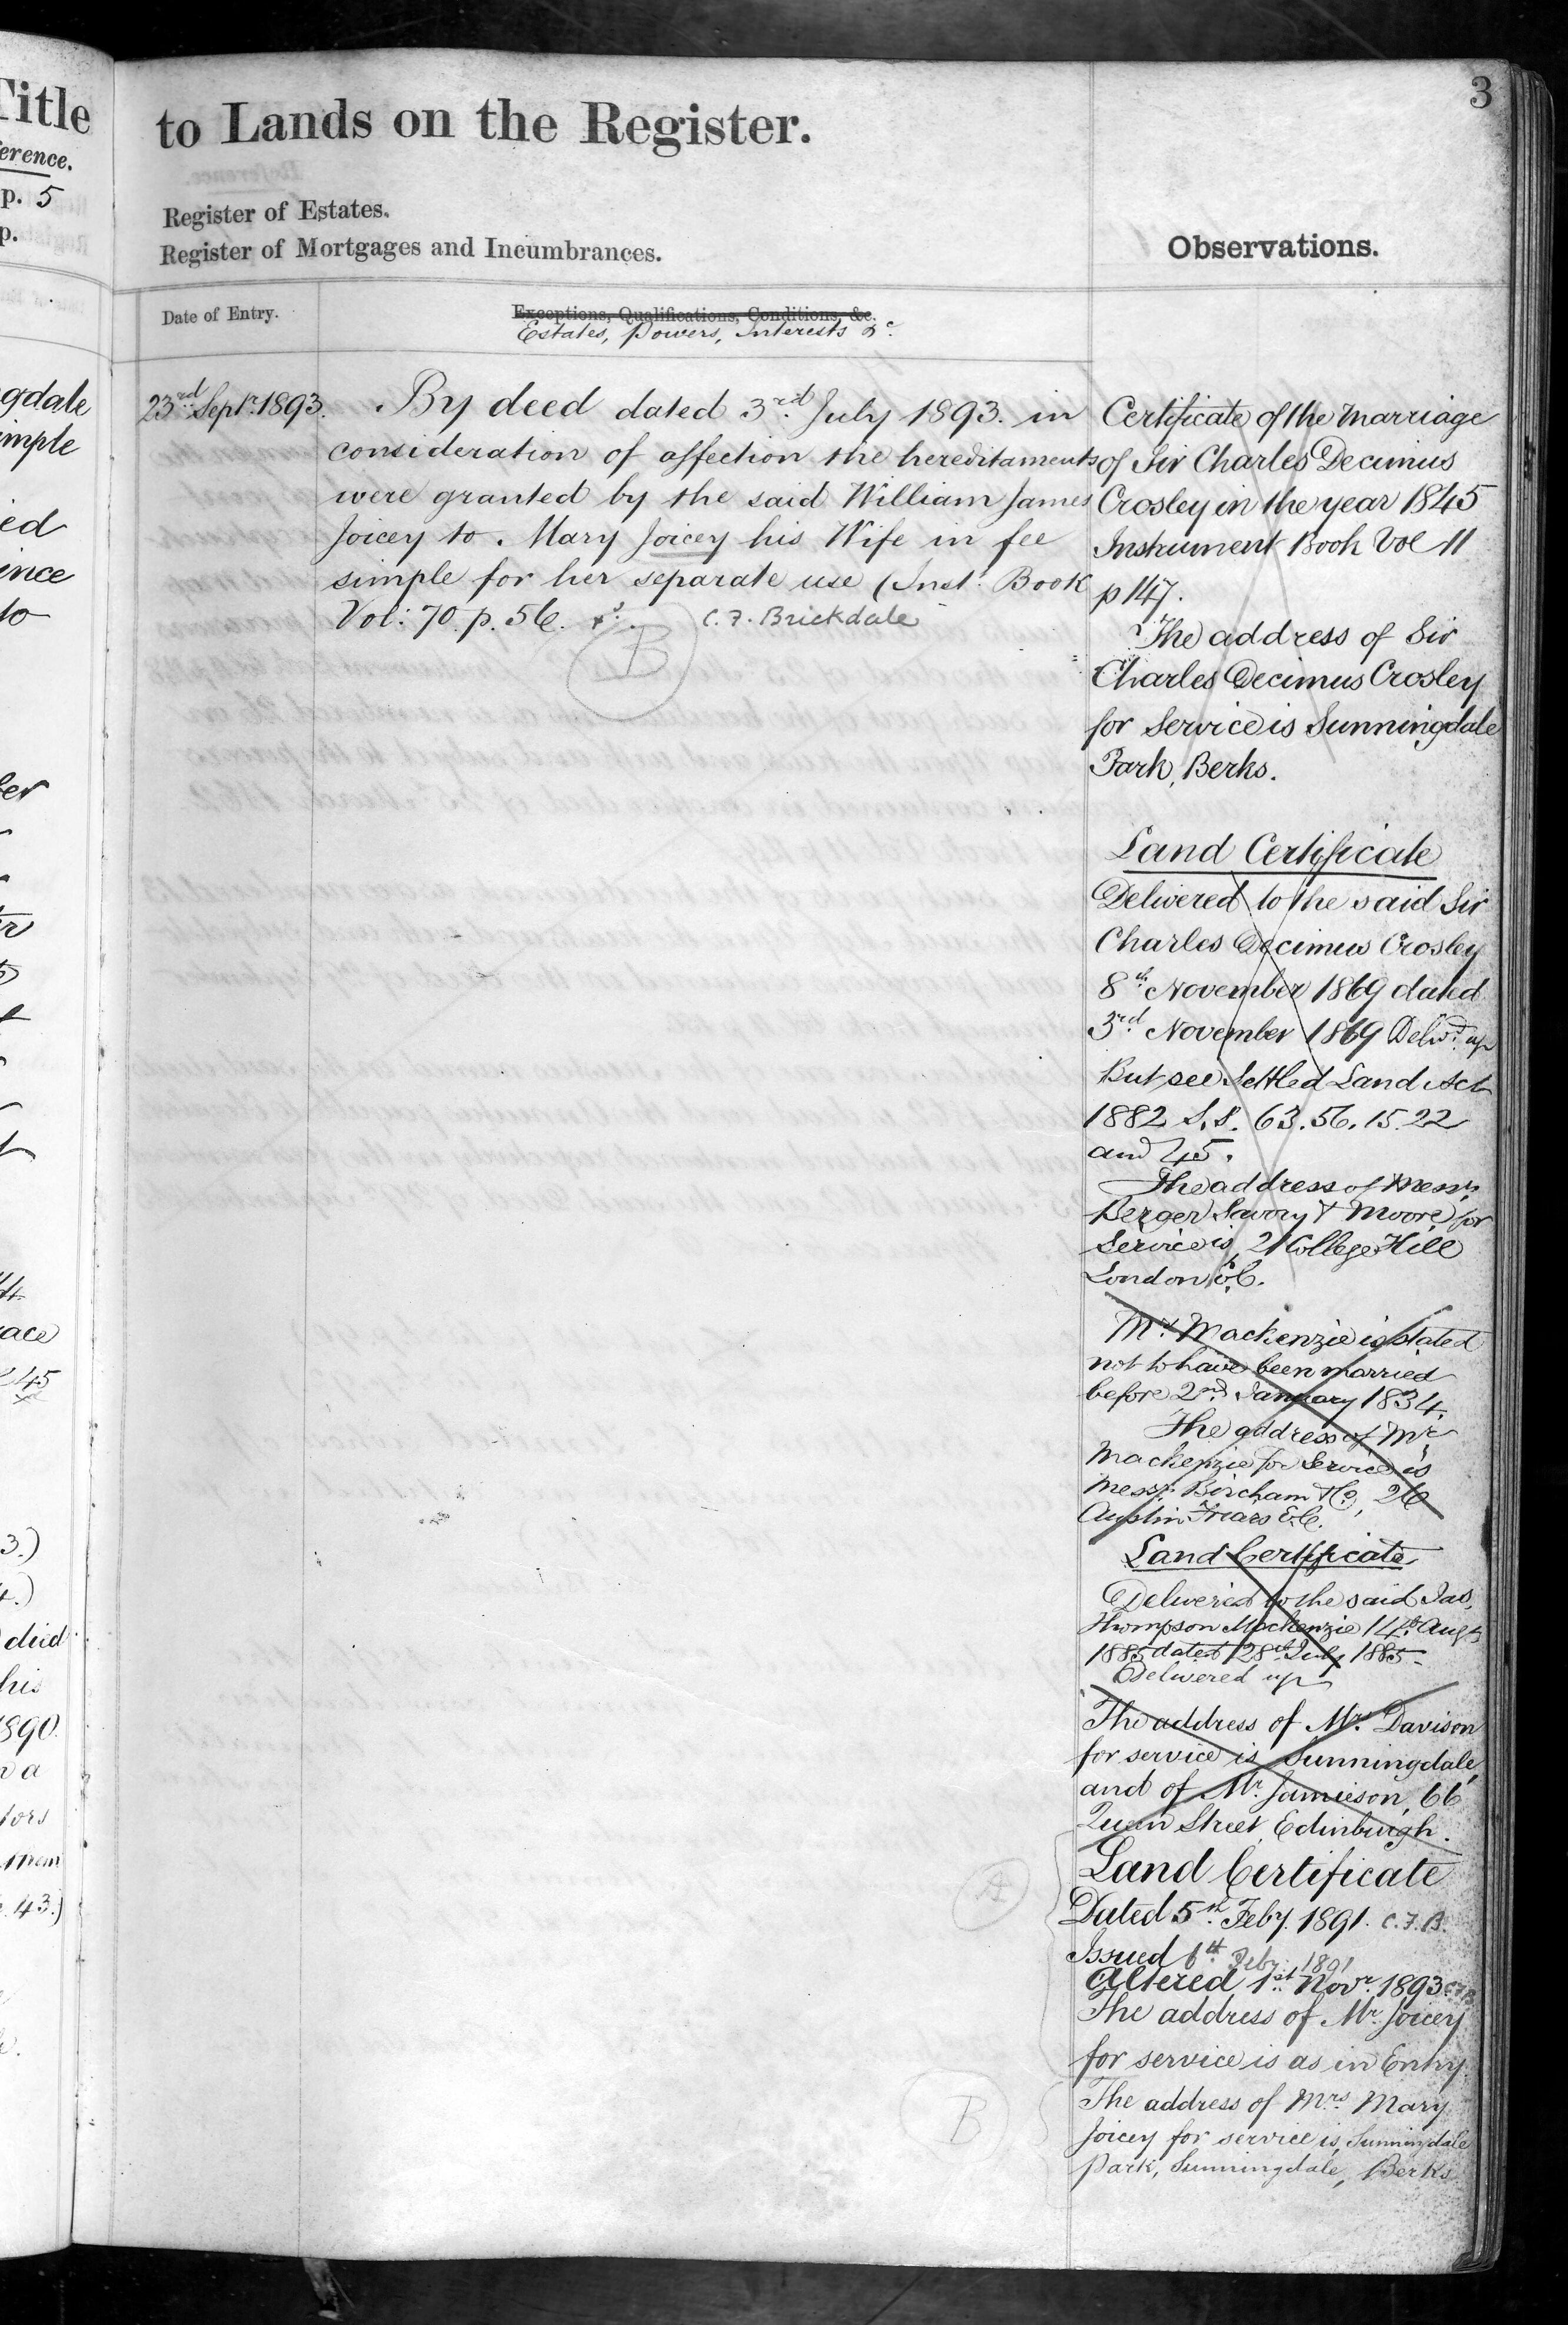 Title
erence.
p. 5
p.
gdale
imple
ied
ince
to
ace
245
3.)
4.)
died
his
1890.
a
tors
them
43.)
3
to Lands on the Register.
Register of Estates.
Register of Mortgages and Incumbrances.
Observations.
Date of Entry.
Exceptions, Qualifications, Conditions, &c.
Estates, Powers, Interests &c.
23rd Septr. 1893.
By deed dated 3rd July 1893. in
consideration of affection the hereditaments
were granted by the said William James
Joicey to Mary Joicey his Wife in fee
simple for her separate use (Inst. Book
Vol: 70. p. 56. C. F. Brickdale
B
Certificate of the Marriage
of Sir Charles Decimus
Crosley in the year 1845
Instrument Book Vol 11
p 147.
The address of Sir
Charles Decimus Crosley
for Service is Sunningdale
Park, Berks.
Land Certificate
Delivered to the said Sir
Charles Decimus Crosley
8th November 1869 dated
3rd November 1869 Delivd. up
But see Settled Land Act
1882 S.S. 63. 56. 15. 22
and 45.
The address of Messrs
Berger Savory & Moore for
Service is 21 College Hill
London E.C.
Mr. Mackenzie is stated
not to have been married
before 2nd January 1834.
The address of Mr
Mackenzie for Service is
Messrs. Bircham & Co, 26
Austin Friars E.C.
Land Certificate
Delivered to the said Jas.
Thompson Mackenzie 14th Augt
1885 dated 28th July 1885.
Delivered up
The address of Mrs. Davison
for service is Sunningdale,
and of Mr. Jamieson, 66
Queen Street, Edinburgh.
Land Certificate
A
Dated 5th Feby. 1891. C.F.B.
Issued 6th Feby. 1891
Altered 1st Novr. 1893 C.F.B.
The address of Mr Joicey
for service is as in Entry.
The address of Mrs. Mary
B
Joicey for service is, Sunningdale
Park, Sunningdale, Berks.